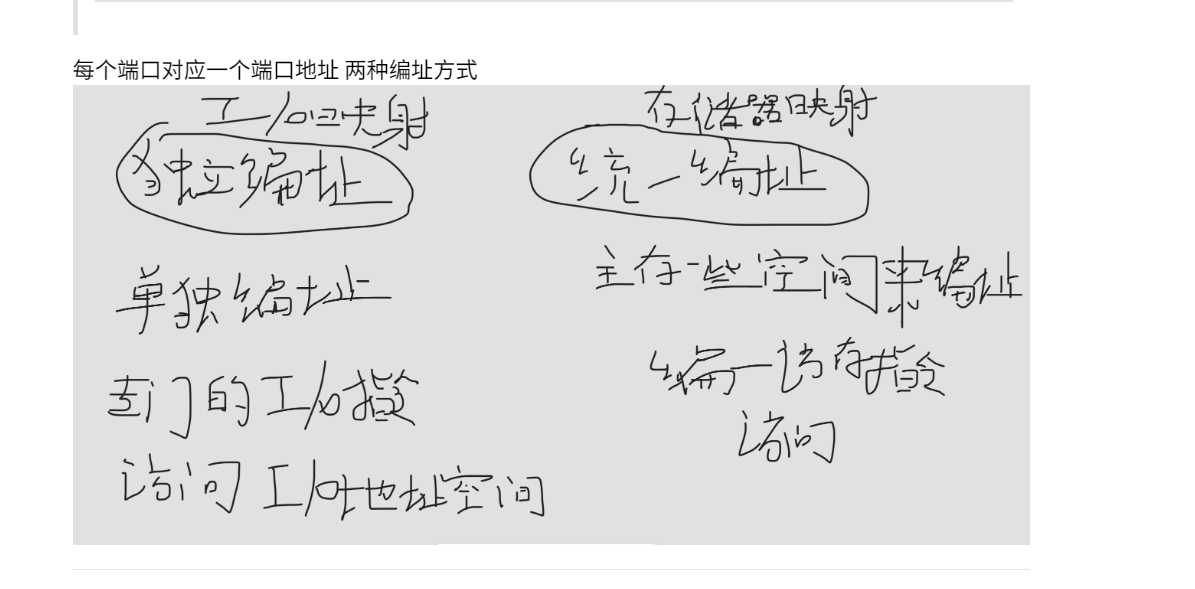 每个端口对应一个端口地址 两种编址方式
I/O映射
独立编址
单独编址
专门的I/O指令
访问I/O地址空间
存储器映射
统一编址
主存一些空间来编址
统一访存指令
访问